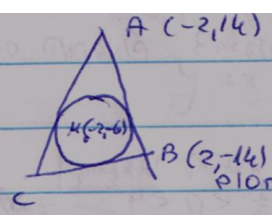 A (-2,14)
M(-2,-6)
B (2,-14)
C